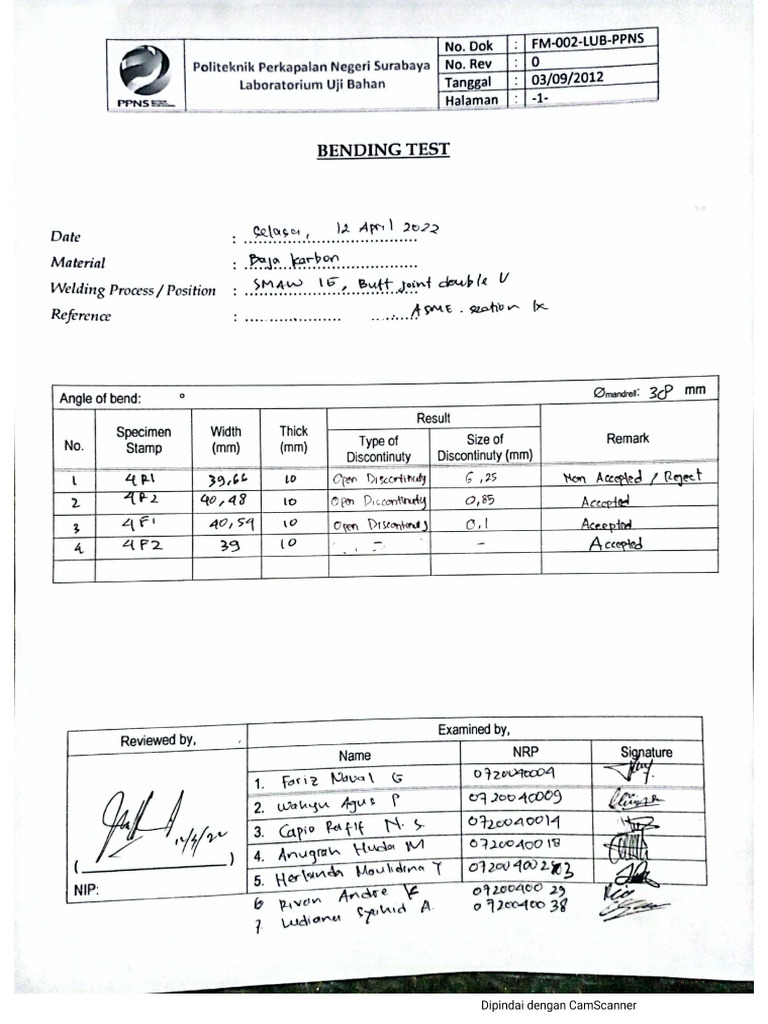 PPNS
Politeknik Perkapalan Negeri Surabaya
Laboratorium Uji Bahan
No. Dok : FM-002-LUB-PPNS
No. Rev : 0
Tanggal : 03/09/2012
Halaman : -1-
BENDING TEST
Date : Selasa, 12 April 2022
Material : Baja karbon
Welding Process / Position : SMAW 1G, Butt joint double V
Reference : ASME section IX
Angle of bend: ° Ømandrell: 38 mm
No. Specimen Stamp Width (mm) Thick (mm) Result Remark
Type of Discontinuty Size of Discontinuty (mm)
1 4R1 39,66 10 Open Discontinuty 6,25 Non Accepted / Reject
2 4R2 40,48 10 Open Discontinuty 0,85 Accepted
3 4F1 40,59 10 Open Discontinuty 0,1 Accepted
4 4F2 39 10 - - Accepted
Reviewed by, Examined by,
Name NRP Signature
1. Fariz Naval G 0720040004
2. Wahyu Agus P 0720040009
3. Capio Rafif N. S. 0720040014
4. Anugrah Huda M 0720040018
5. Herlanda Maulidina Y
6 Rivan Andre K 0720040029
7. Ludiana Syahid A. 0720040038
( )
NIP:
Dipindai dengan CamScanner